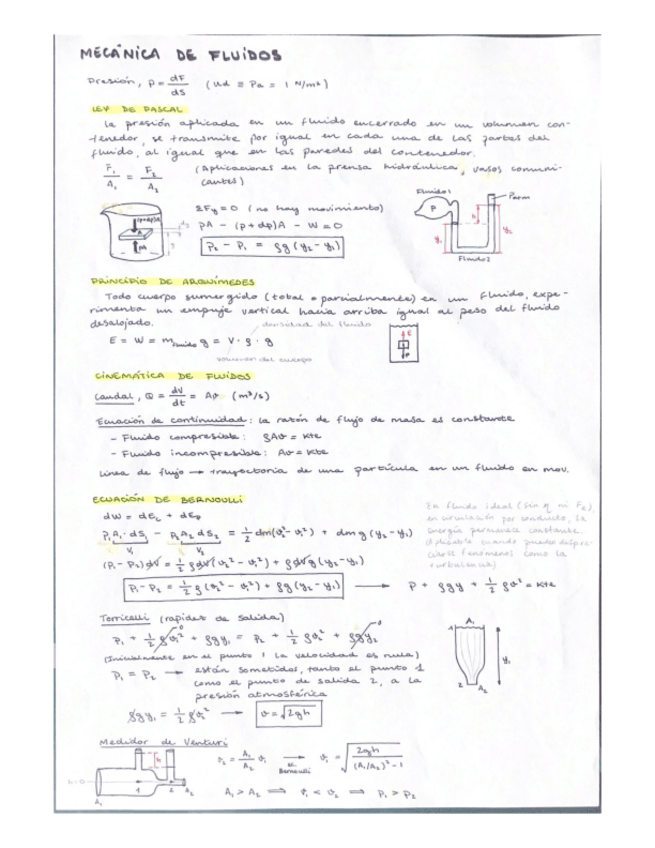 MECÁNICA DE FLUIDOS
Presión, P = dF/dS (Ud ≡ Pa = 1 N/m²)
LEY DE PASCAL
La presión aplicada en un fluido encerrado en un volumen con-
tenedor, se transmite por igual en cada una de las partes del
fluido, al igual que en las paredes del contenedor.
F₁/A₁ = F₂/A₂ (Aplicaciones en la prensa hidráulica, vasos comuni-
cantes)
(p+dp)A A pA
ΣFy = 0 (no hay movimiento)
pA - (p+dp)A - W = 0
P₂ - P₁ = ρg(y₂-y₁)
Fluido 1 P Patm h y₁ y₂ Fluido 2
PRINCIPIO DE ARQUÍMEDES
Todo cuerpo sumergido (total o parcialmente) en un fluido, expe-
rimenta un empuje vertical hacia arriba igual al peso del fluido
desalojado.
densidad del fluido
E = W = m fluido g = V · ρ · g
volumen del cuerpo
E P
CINEMÁTICA DE FLUIDOS
Caudal, Q = dV/dt = Av (m³/s)
Ecuación de continuidad: la razón de flujo de masa es constante
- Fluido compresible: ρAv = Kte
- Fluido incompresible: Av = Kte
Línea de flujo → trayectoria de una partícula en un fluido en mov.
ECUACIÓN DE BERNOULLI
dW = dEc + dEp
P₁A₁·dS₁ - P₂A₂dS₂ = 1/2 dm(v₂²-v₁²) + dmg(y₂-y₁)
V₁ V₂
(P₁-P₂)dV = 1/2 ρdV(v₂²-v₁²) + ρdVg(y₂-y₁)
P₁-P₂ = 1/2 ρ(v₂²-v₁²) + ρg(y₂-y₁) → P + ρgy + 1/2 ρv² = Kte
En fluido ideal (sin η ni FR),
en circulación por conducto, la
energía permanece constante.
(Aplicable cuando puedan despre-
ciarse fenómenos como la
turbulencia)
Torricelli (rapidez de salida)
P₁ + 1/2 ρv₁² + ρgy₁ = P₂ + 1/2 ρv₂² + ρgy₂
0 0
(Inicialmente en el punto 1 la velocidad es nula)
P₁ = P₂ → están sometidos, tanto el punto 1
como el punto de salida 2, a la
presión atmosférica
ρgy₁ = 1/2 ρv₂² → v = √2gh
A₁ 1 y₁ 2 A₂
Medidor de Venturi
h=0 h 1 2 A₂ A₁
v₂ = A₁/A₂ v₁ → ec. Bernoulli v₁ = √(2gh/((A₁/A₂)²-1))
A₁ > A₂ ⟹ v₁ < v₂ ⟹ P₁ > P₂